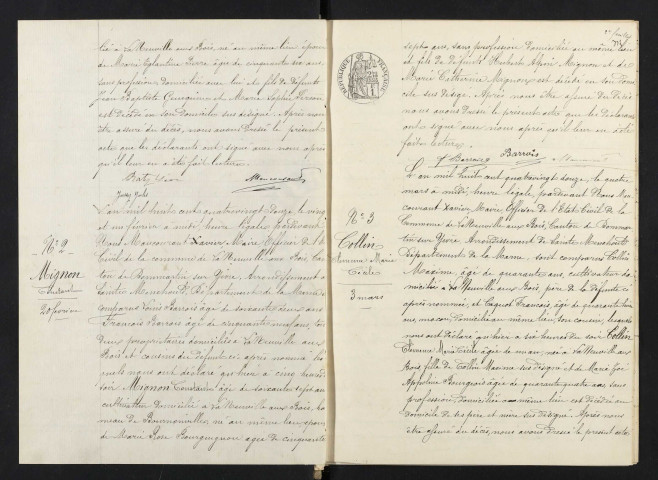 lié à La Neuville aux Bois, né au même lieu, époux
de Marie Eglantine Pierre âgée de cinquante six ans,
sans profession, domiciliée avec lui et fils de défunts
Jean Baptiste et Marie Sophie
est décédé en son domicile sus désigné. Après nous
être assuré du décès, nous avons dressé le présent
acte que les déclarants ont signé avec nous après
qu'il leur en a été fait lecture.
N° 2
Mignon
Constantin
20 février
L'an mil huit cent quatrevingt douze le vingt
et un février à huit heures légales, pardevant
Nous Moncourant Xavier Marie Officier de l'E
Civil de la commune de La Neuville aux Bois, Can
ton de Dommartin sur Yèvre, Arrondissement de
Sainte Menehould, Département de la Marne,
comparus Louis Barrois âgé de soixante ans
François Barrois âgé de cinquante neuf ans, tous
deux propriétaires domiciliés à La Neuville aux
Bois et cousins du défunt ci après nommé les
quels nous ont déclaré qu'hier à cinq heures
soir Mignon Constantin âgé de soixante sept ans
cultivateur domicilié à La Neuville aux Bois, ha
meau de né au même lieu, époux
de Marie Rose Bourguignon âgée de cinquante
RÉPUBLIQUE FRANÇAISE
sept ans, sans profession, domiciliée au même lieu
et fils de défunts Mignon et de
Marie Catherine Mignon, est décédé en son domi
cile sus désigné. Après nous être assuré du décès
nous avons dressé le présent acte que les déclarants
ont signé avec nous après qu'il leur en a été
fait lecture.
F Barrois Barrois
N° 3
Collin
Etienne Marie
Cécile
3 mars
L'an mil huit cent quatrevingt douze, le quatre
mars à midi, heure légale, pardevant Nous Mon
courant Xavier Marie, Officier de l'Etat Civil de la
Commune de La Neuville aux Bois, Canton de Dommar
tin sur Yèvre, Arrondissement de Sainte Menehould
Département de la Marne, sont comparus Collin
Maxime, âgé de quarante ans, cultivateur do
micilié à La Neuville aux Bois, père de la défunte ci
après nommée, et François âgé de quarante
ans, maçon, domicilié au même lieu, son cousin, lesquels
nous ont déclaré qu'hier à six heures du soir Collin
Marie Cécile âgée de un an, née à La Neuville aux
Bois, fille de Collin Maxime sus désigné et de Marie Zoé
Appoline Bourgeois âgée de quarante quatre ans, sans
profession, domiciliée au même lieu est décédée au
domicile de ses père et mère sus désigné. Après nous
être assuré du décès, nous avons dressé le présent acte